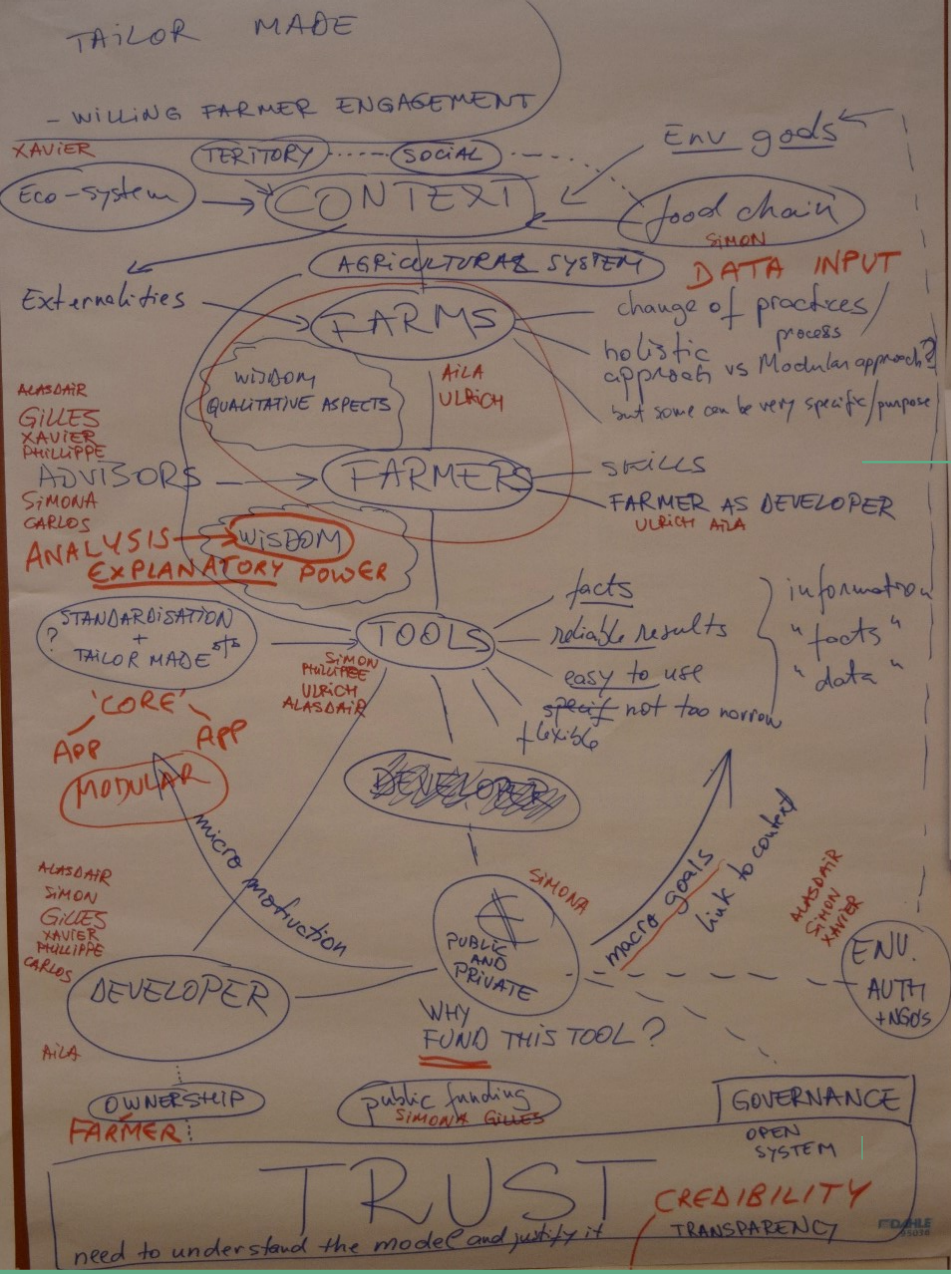 TAILOR MADE
- WILLING FARMER ENGAGEMENT
XAVIER
TERITORY
SOCIAL
Env gods
Eco-system
CONTEXT
food chain
SIMON
AGRICULTURAL SYSTEM
DATA INPUT
Externalities
FARMS
change of practices/
process
holistic
approach vs Modular approach?
but some can be very specific/purpose
WISDOM
QUALITATIVE ASPECTS
AILA
ULRICH
ALASDAIR
GILLES
XAVIER
PHILLIPPE
ADVISORS
SIMONA
CARLOS
FARMERS
SKILLS
FARMER AS DEVELOPER
ULRICH AILA
ANALYSIS
WISDOM
EXPLANATORY POWER
STANDARDISATION
?
+
TAILOR MADE
TOOLS
facts
reliable results
easy to use
specif not too narrow
flexible
information
"facts"
"data"
SIMON
PHILLIPPE
ULRICH
ALASDAIR
'CORE'
APP
APP
MODULAR
DEVELOPER
micro motivution
macro goals
link to context
ALASDAIR
SIMON
XAVIER
ALASDAIR
SIMON
GILLES
XAVIER
PHILLIPPE
CARLOS
DEVELOPER
AILA
SIMONA
PUBLIC
AND
PRIVATE
ENV.
AUTH
+NGO's
WHY
FUND THIS TOOL?
OWNERSHIP
FARMER
public funding
SIMONA GILLES
GOVERNANCE
OPEN
SYSTEM
TRUST
CREDIBILITY
TRANSPARENCY
need to understand the model and justify it
DAHLE
95038